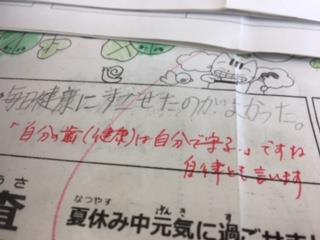 毎日健康にすごせたのがよかった。
「自分の歯(健康)は自分で守る。」ですね
自律とも言います
うさ
なつやす げんき す
査 夏休み中元気に過ごせまし